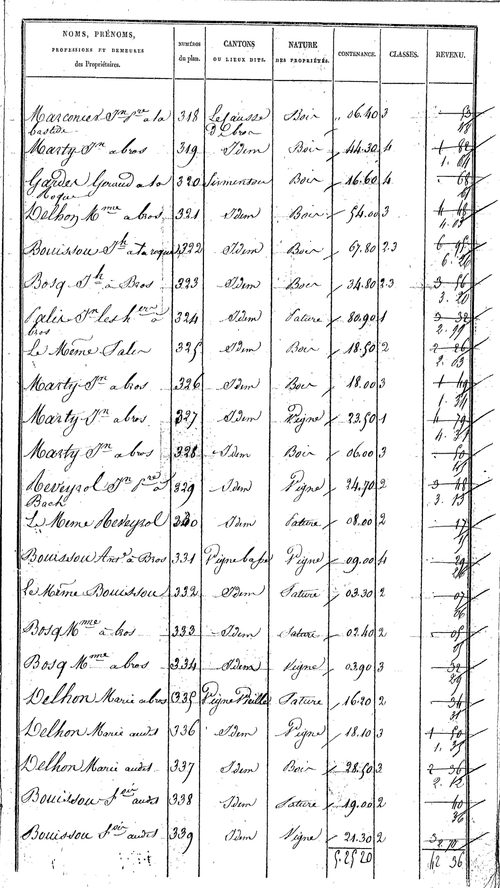 NOMS, PRÉNOMS,
PROFESSIONS ET DEMEURES
des Propriétaires.
NUMÉROS
du plan.
CANTONS
OU LIEUX DITS.
NATURE
DES PROPRIÉTÉS.
CONTENANCE.
CLASSES.
REVENU.
Marconier Jn Pre a la bastide 318 Bois 06.40 3
Marty Jn a bros 319 Idem Bois 44.30 4 1 82
1.
Garder Giraud a la Roque 320 Bois 16.60 4 68
Delhon Mme a bros 321 Idem Bois 54.00 3 4 48
4.03
Bouissou Jh a la roque 322 Idem Bois 67.80 2.3 6
6.
Bosq Jh à Bros 323 Idem Bois 34.80 2.3 3 56
3.20
Jn les hers à bros 324 Idem Pature 80.90 1 3 32
2.99
Le Même 325 Idem Bois 18.50 2 2 26
2.03
Marty Jn a bros 326 Idem Bois 18.00 3 1 49
1.34
Marty Jn a bros 327 Idem Vigne 23.50 1 4 79
4.31
Marty Jn a bros 328 Idem Bois 06.00 3 50
45
Reveyrol Jn Pre à Bach 329 Idem Vigne 24.70 2 3 48
3.13
Le Meme Reveyrol 330 Idem Pature 08.00 2 17
Bouissou Ans a Bros 331 Vigne basse Vigne 09.00 4 29
26
Le Même Bouissou 332 Idem Pature 03.30 2 07
06
Bosq Mme a bros 333 Idem Pature 02.40 2 05
Bosq Mme a bros 334 Idem Vigne 03.90 3 32
29
Delhon Marie a bros 335 Vigne Vieille Pature 16.20 2 34
31
Delhon Marie audt 336 Idem Vigne 18.10 3 1 50
1.35
Delhon Marie audt 337 Idem Bois 28.50 3 2 36
2.12
Bouissou audt 338 Idem Pature 19.00 2 40
36
Bouissou audt 339 Idem Vigne 21.30 2 3
2.70
5.25 20 42 36